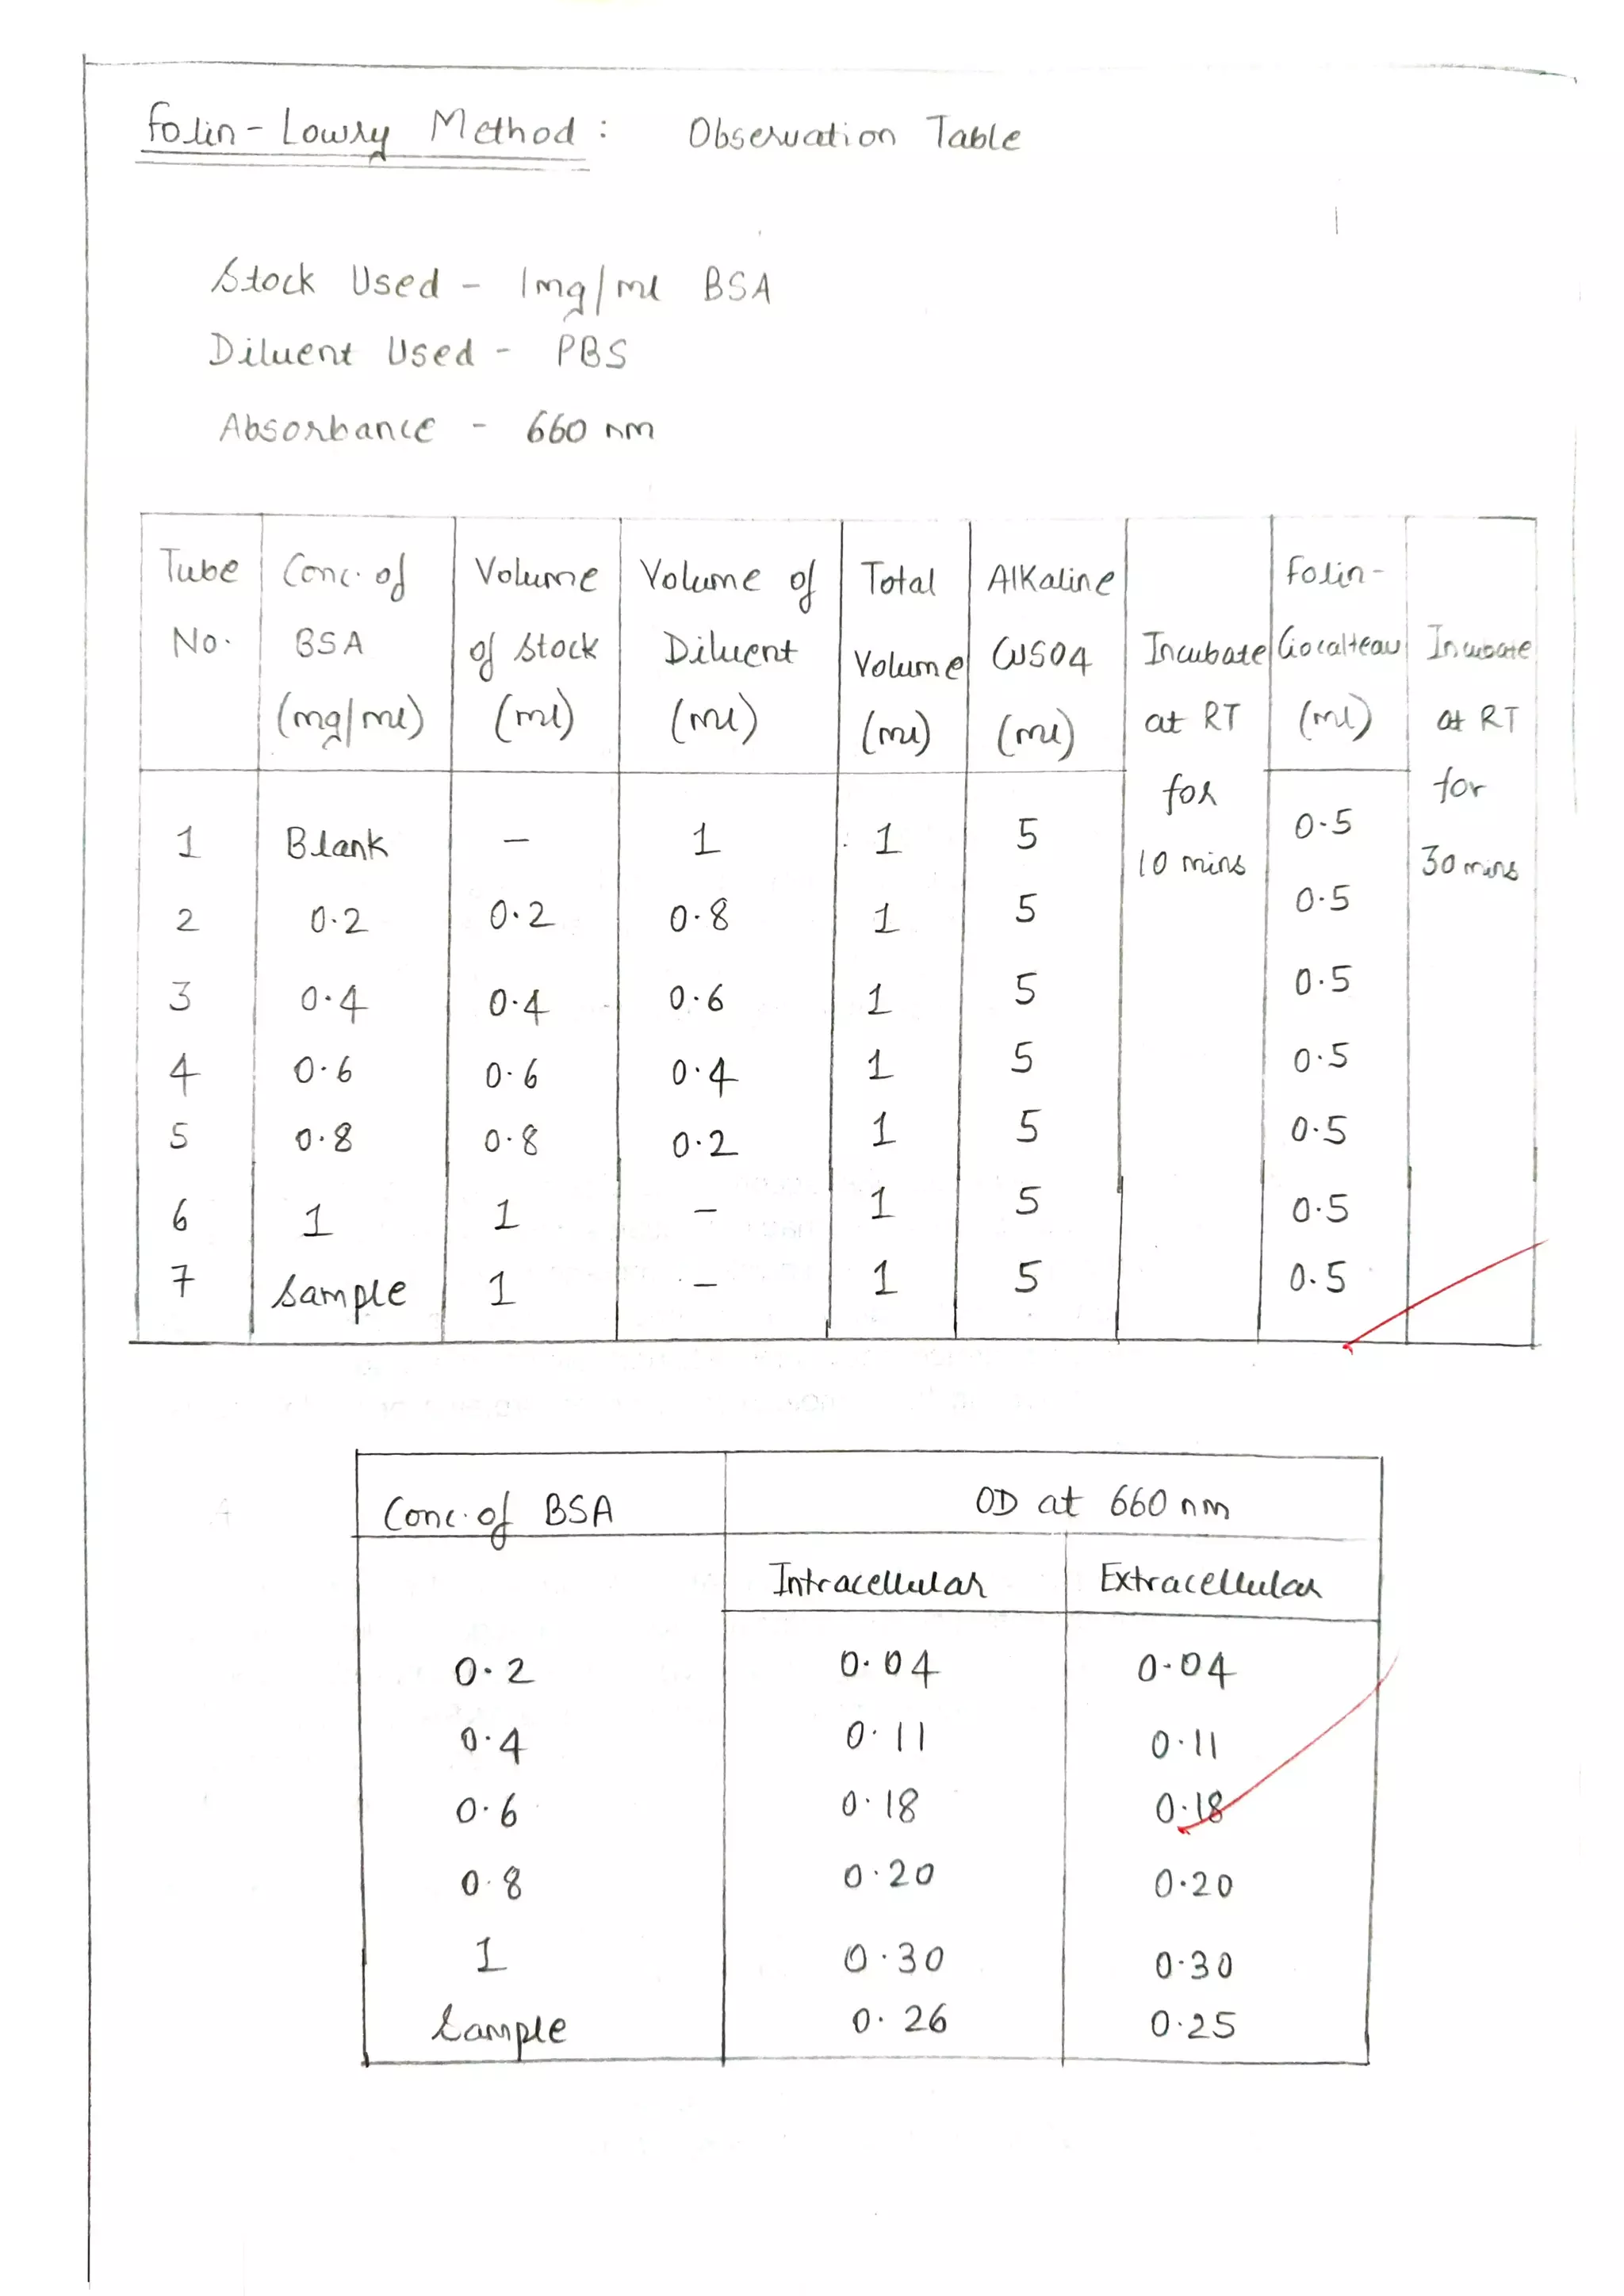 Folin-Lowry Method : Observation Table
Stock Used - 1mg/ml BSA
Diluent Used - PBS
Absorbance - 660 nm
Tube No. | Conc. of BSA (mg/ml) | Volume of Stock (ml) | Volume of Diluent (ml) | Total Volume (ml) | Alkaline CuSO4 (ml) | Incubate at RT for 10 mins | Folin-Ciocalteau (ml) | Incubate at RT for 30 mins
1 Blank - 1 1 5 0.5
2 0.2 0.2 0.8 1 5 0.5
3 0.4 0.4 0.6 1 5 0.5
4 0.6 0.6 0.4 1 5 0.5
5 0.8 0.8 0.2 1 5 0.5
6 1 1 - 1 5 0.5
7 Sample 1 - 1 5 0.5
Conc. of BSA OD at 660 nm
Intracellular Extracellular
0.2 0.04 0.04
0.4 0.11 0.11
0.6 0.18 0.18
0.8 0.20 0.20
1 0.30 0.30
Sample 0.26 0.25